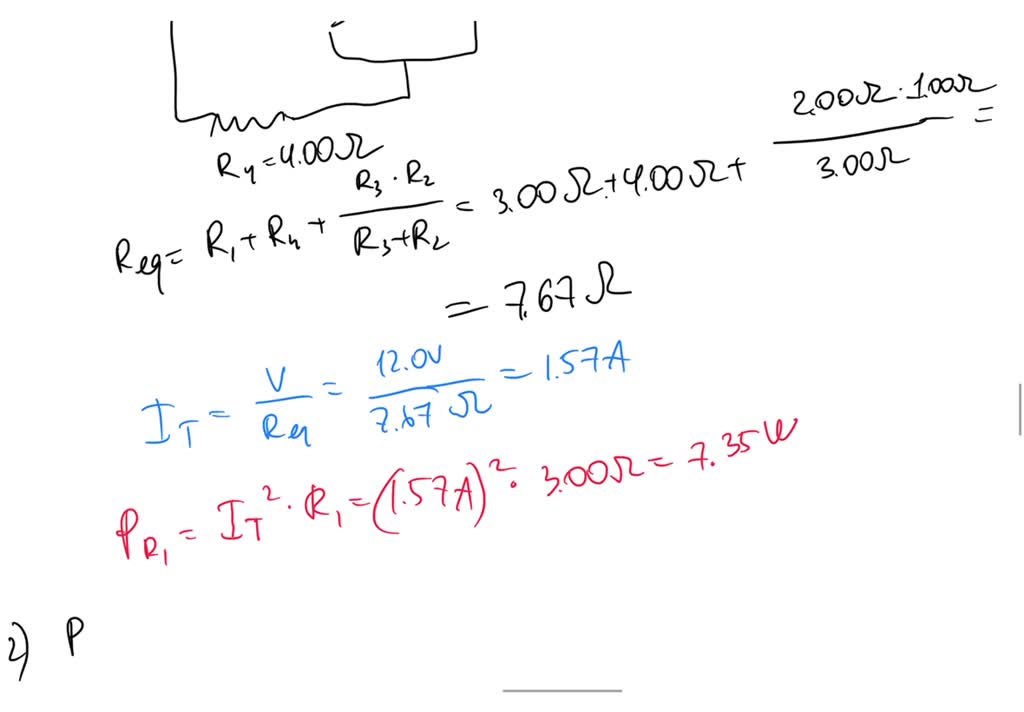 R4 = 4.00Ω
Req = R1 + R4 + R3 · R2 / R3 + R2 = 3.00 Ω + 4.00 Ω + 2.00Ω · 1.00Ω / 3.00Ω =
= 7.67 Ω
IT = V / Req = 12.0V / 7.67 Ω = 1.57A
PR1 = IT² · R1 = (1.57A)² · 3.00Ω = 7.35W
2) P